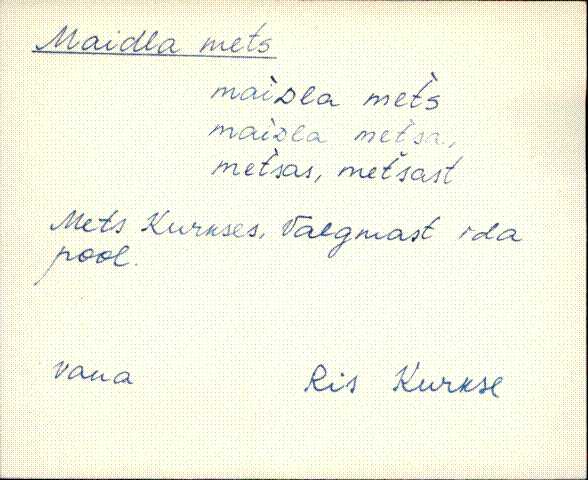 Maidla mets
maìᴅla mèt́s
maìᴅla met́sa,
mèt́sas, mèt́sast
Mets Kurkses, Valgmast ida
pool.
vana Ris Kurkse